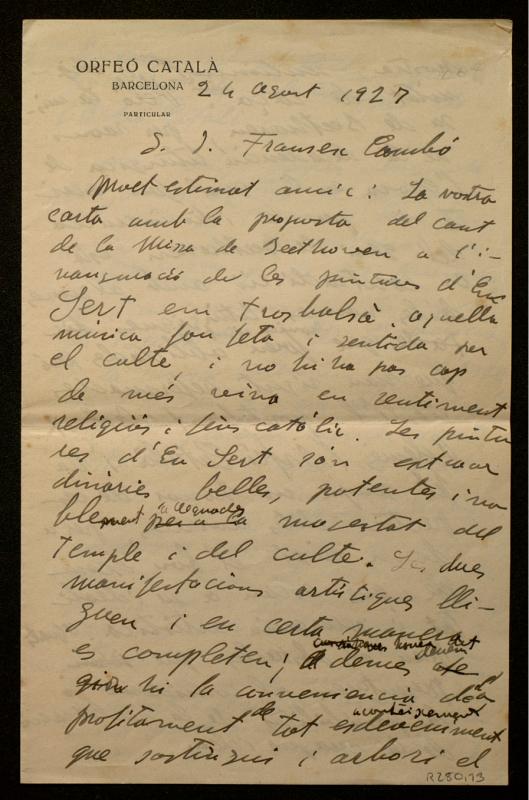 ORFEÓ CATALÀ
BARCELONA
PARTICULAR
24 agost 1927
S. J. Fransesc Cambó
Molt estimat amic: La vostra
carta amb la proposta del cant
de la Missa de Beethoven a l'i-
nauguració de les pintures d'En
Sert em trasbalsà. aquella
música fou feta i sentida per
el culte, i no hi ha pas cap
de més reina en sentiment
religiós i fins catòlic. Les pintu
res d'En Sert són extraor
dinàries belles, potentes i no
blement adequades per a la majestat del
temple i del culte. Les dues
manifestacions artístiques lli-
guen i en certa manera
es completen; demés
hi la conveniencia d'a
profitament de tot esdeveniment acontèixement
que sostingui i arbori el
R280,13